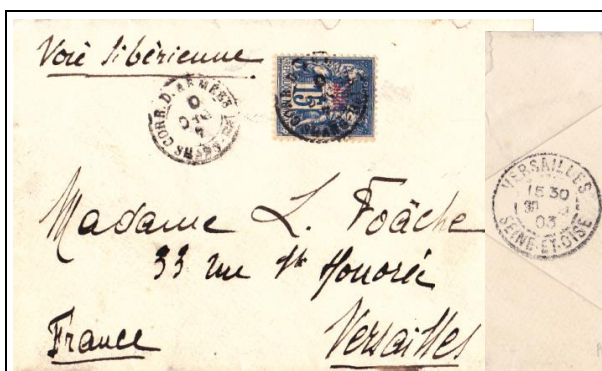 Voie Sibérienne
CORR. D. ARMÉES
15
Madame L. Foäche
33 rue St Honorée
France
Versailles
VERSAILLES
15 30
03
SEINE-ET-OISE